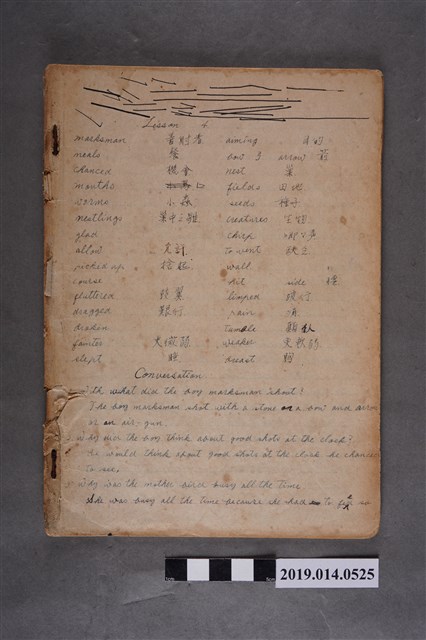 Lesson 4
marksman 善射者 aiming 目的
meals 餐 bow & arrow 箭
chanced 機會 nest 巢
mouths 口 fields 田地
worms 小虫 seeds 種子
nestlings 巢中之雛 creatures 生物
glad chirp
allow 允許 to went
picked up 拾起 wall
course hit side
fluttered 鼓翼 limped 跛行
dragged 艱行 rain 雨
broken tumble 顛仆
fainter 大微弱 weaker 更軟弱
slept 睡 breast 胸
Conversation
With what did the boy marksman shoot?
The boy marksman shot with a stone or a bow and arrow
or an air-gun
Why did the boy think about good shots at the clock?
He would think about good shots at the clock he chanced
to see.
Why was the mother bird busy all the time.
She was busy all the time because she had to
2019.014.0525